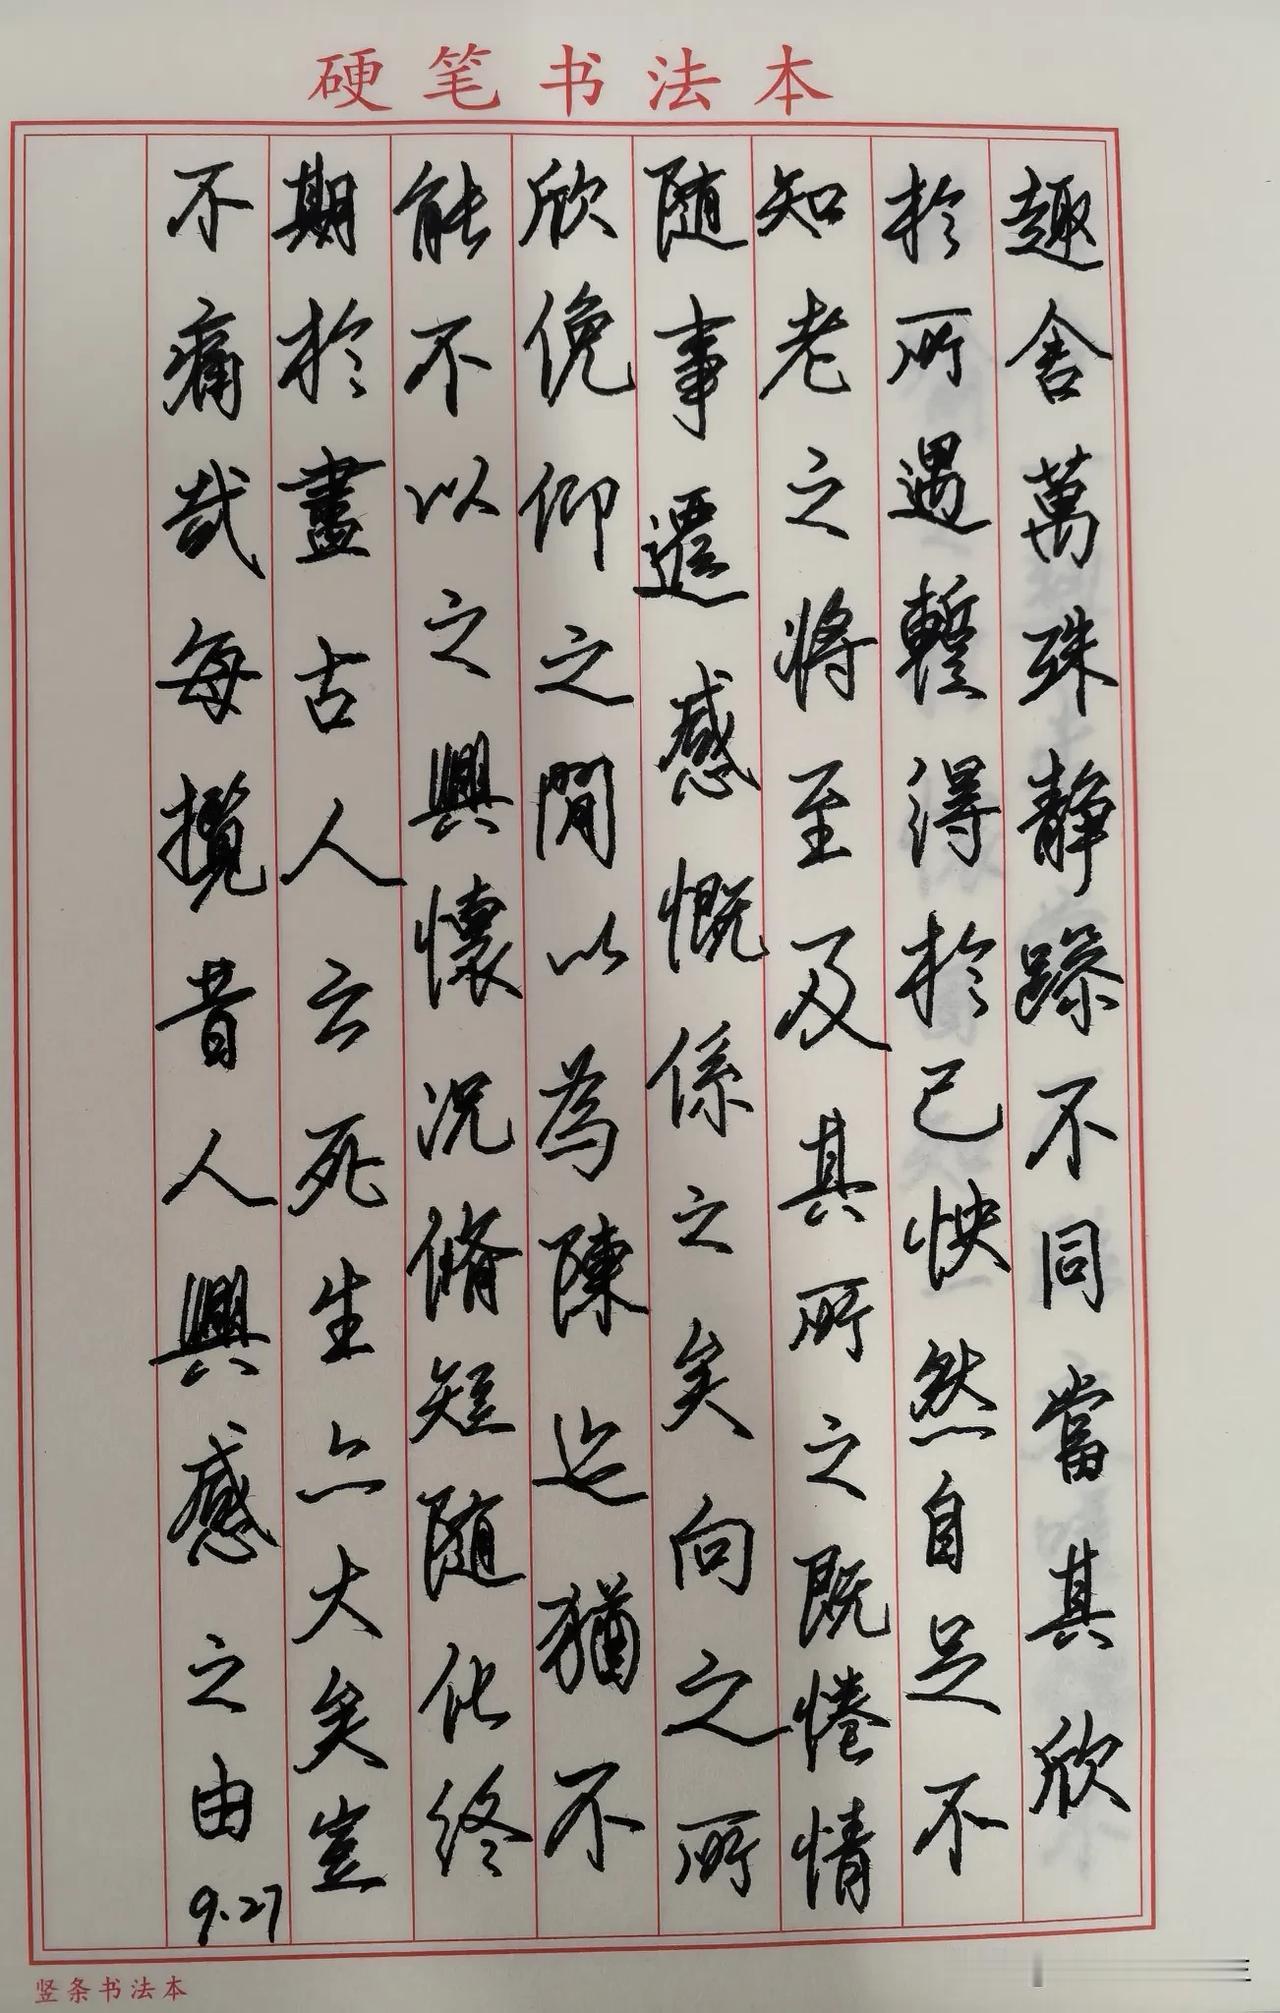 硬笔书法本
趣舍萬殊静躁不同當其欣
於所遇暫得於己怏然自足不
知老之将至及其所之既惓情
随事遷感慨係之矣向之所
欣俛仰之閒以為陳迹猶不
能不以之興懷况脩短随化终
期於盡古人云死生亦大矣豈
不痛哉每攬昔人興感之由
9.27
竖条书法本